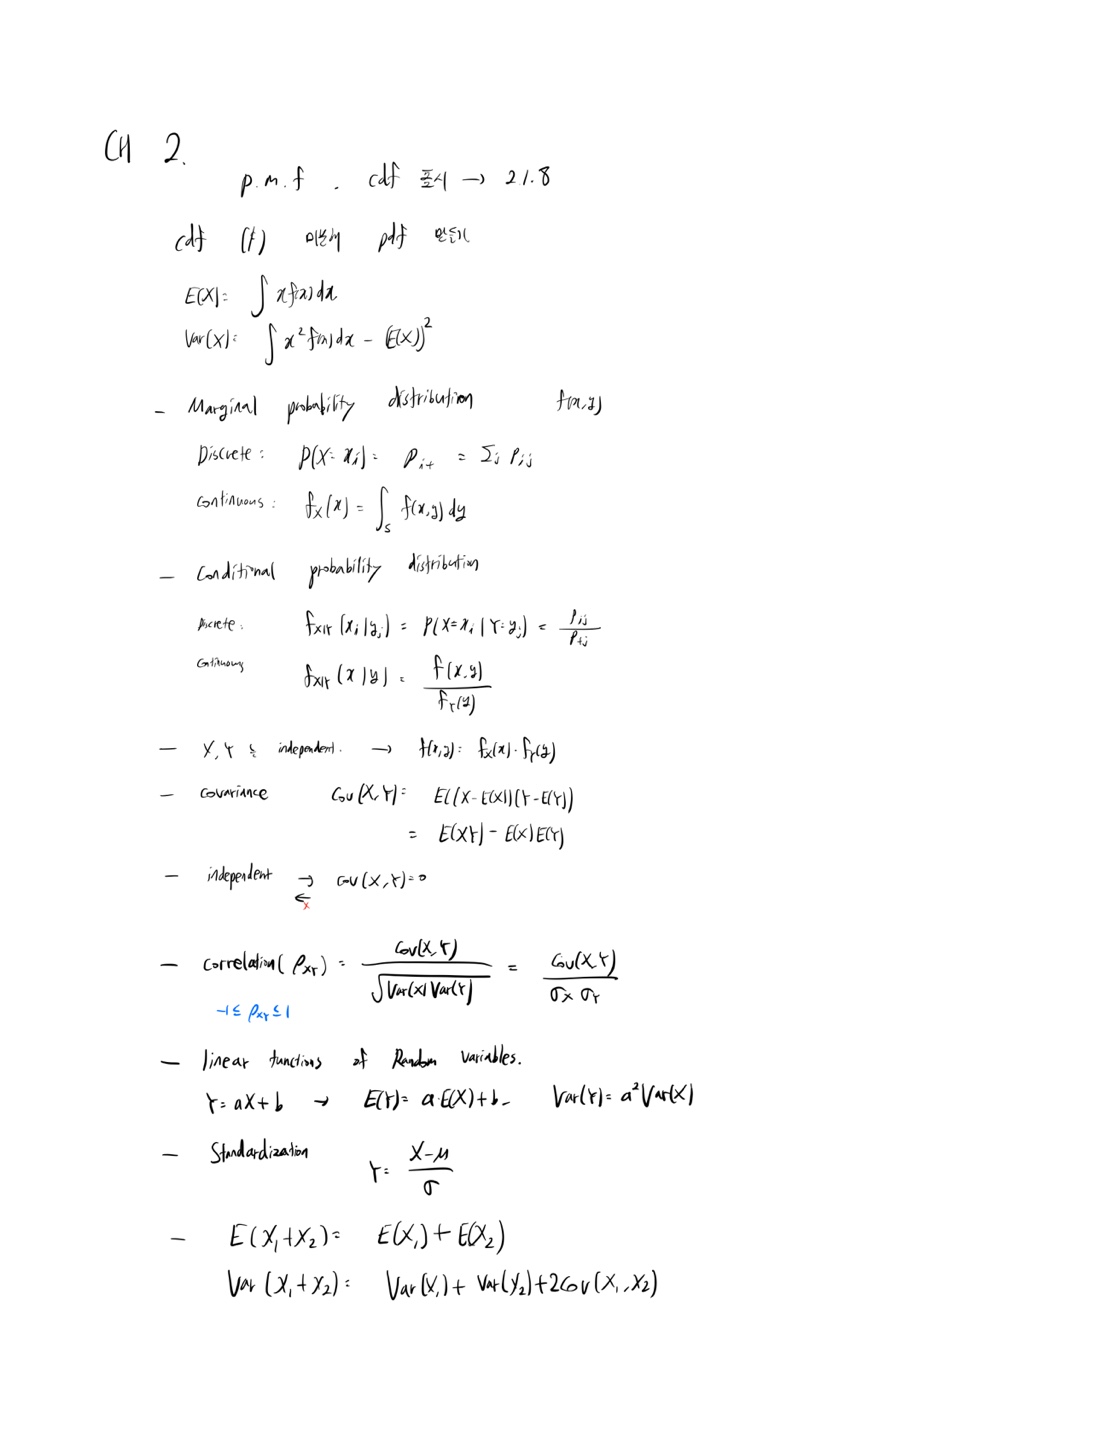 CH 2.
p.m.f . cdf 표시 → 2.1.8
cdf (F) 미분해 pdf 만들기
E(X)= ∫ x f(x) dx
Var(X)= ∫ x² f(x) dx - (E(X))²
- Marginal probability distribution f(x,y)
Discrete : P(X=xᵢ) = Pᵢ₊ = Σⱼ Pᵢⱼ
Continuous : f_X(x) = ∫_S f(x,y) dy
- Conditional probability distribution
Discrete : f_X|Y (xᵢ|yⱼ) = P(X=xᵢ | Y=yⱼ) = Pᵢⱼ / P₊ⱼ
Continuous f_X|Y (x|y) = f(x,y) / f_Y(y)
- X, Y independent. → f(x,y) = f_X(x)·f_Y(y)
- covariance Cov(X,Y)= E((X-E(X))(Y-E(Y))
= E(XY) - E(X)E(Y)
- independent → Cov(X,Y)=0
← x
- correlation( ρ_XY) = Cov(X,Y) / √Var(X)Var(Y) = Cov(X,Y) / σ_X σ_Y
-1≤ ρ_XY ≤1
- linear functions of Random variables.
Y=aX+b → E(Y)= a·E(X)+b. Var(Y)= a²Var(X)
- Standardization Y= X-μ / σ
- E(X₁+X₂)= E(X₁)+E(X₂)
Var(X₁+X₂)= Var(X₁)+ Var(X₂)+2Cov(X₁,X₂)